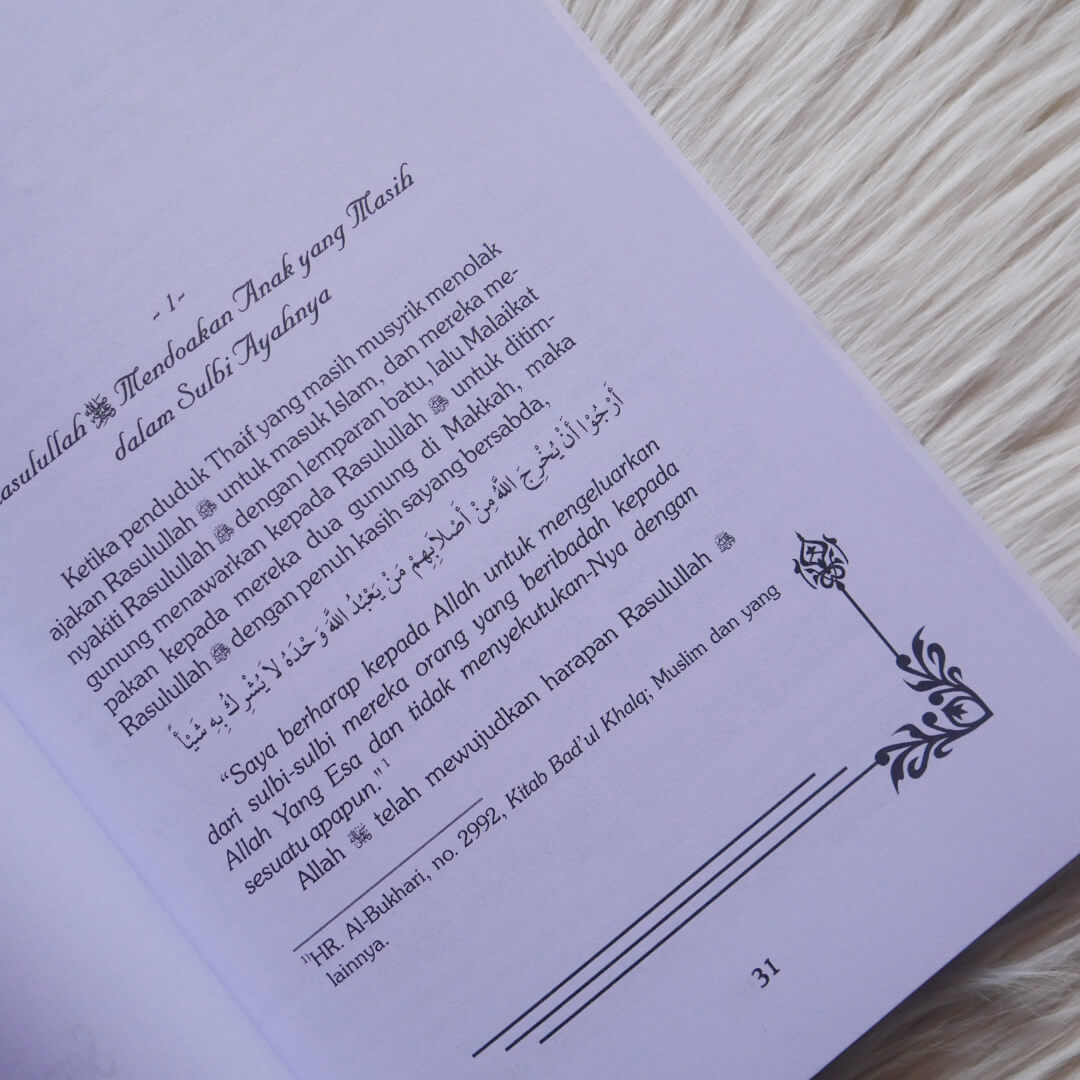 - 1 -
Rasulullah ﷺ Mendoakan Anak yang Masih
dalam Sulbi Ayahnya
Ketika penduduk Thaif yang masih musyrik menolak
ajakan Rasulullah ﷺ untuk masuk Islam, dan mereka me-
nyakiti Rasulullah ﷺ dengan lemparan batu, lalu Malaikat
gunung menawarkan kepada Rasulullah ﷺ untuk ditim-
pakan kepada mereka dua gunung di Makkah, maka
Rasulullah ﷺ dengan penuh kasih sayang bersabda,
أَرْجُوْا أَنْ يُخْرِجَ اللَّهُ مِنْ أَصْلاَبِهِمْ مَنْ يَعْبُدُ اللَّهَ وَحْدَهُ لاَ يُشْرِكُ بِهِ شَيْئاً
“Saya berharap kepada Allah untuk mengeluarkan
dari sulbi-sulbi mereka orang yang beribadah kepada
Allah Yang Esa dan tidak menyekutukan-Nya dengan
sesuatu apapun."¹
Allah ﷻ telah mewujudkan harapan Rasulullah ﷺ
¹⁾HR. Al-Bukhari, no. 2992, Kitab Bad’ul Khalq; Muslim dan yang
lainnya.
31